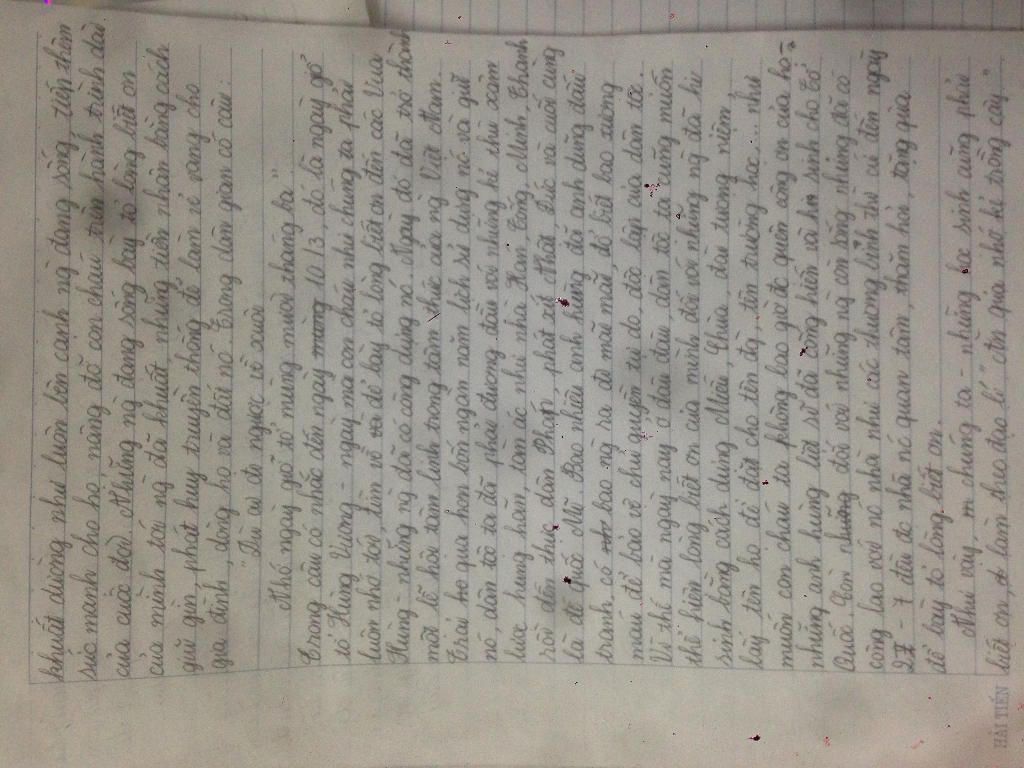 khuất dường như luôn bên cạnh ng đang sống, tiếp thêm
sức mạnh cho họ, nâng đỡ con cháu trên hành trình dài
của cuộc đời. Những ng đang sống bày tỏ lòng biết ơn
của mình tới ng đã khuất những tiền nhân bằng cách
giữ gìn, phát huy truyền thống để làm rẻ vang cho
gia đình, dòng họ và đất nc. Trong dân gian có câu:
"Dù ai đi ngược về xuôi
Nhớ ngày giỗ tổ mùng mười tháng ba"
Trong câu có nhắc đến ngày mùng 10/3, đó là ngày giỗ
tổ Hùng Vương - ngày mà con cháu như chúng ta phải
luôn nhớ tới, tìm về và để bày tỏ lòng biết ơn đến các Vua
Hùng - những ng đã có công dựng nc. Ngày đó đã trở thành
một lễ hội tâm linh trong tâm thức của ng Việt Nam.
Trải qua hơn bốn ngàn năm lịch sử dựng nc và giữ
nc, dân tộc ta đã phải đương đầu với những kẻ thù xâm
lược hung hãn, tàn ác như nhà Hán, Tống, Minh, Thanh
rồi đến thực dân Pháp, phát xít Nhật, Đức và cuối cùng
là đế quốc Mĩ. Bao nhiêu anh hùng đã anh dũng đấu
tranh, có bao ng ra đi mãi mãi, đổ biết bao xương
máu để bảo vệ chủ quyền tự do, độc lập của dân tộc.
Vì thế mà ngày nay ở đâu đâu, dân tộc ta cũng muốn
thể hiện lòng biết ơn của mình đối với những ng đã hi
sinh bằng cách dựng Miếu, Chùa, đài tưởng niệm
lấy tên họ để đặt cho tên đg, tên trường học... như
muốn con cháu ta không bao giờ đc quên công ơn của họ -
những anh hùng liệt sĩ đã cống hiến và hi sinh cho Tổ
Quốc. Còn đối với những ng còn sống nhưng đã có
công lao với nc nhà như các thương binh thì cứ đến ngày
27 - 7 đều đc nhà nc quan tâm, thăm hỏi, tặng quà
để bày tỏ lòng biết ơn.
Như vậy, chúng ta - những học sinh cũng phải
biết ơn, làm theo đạo lí "Ăn quả nhớ kẻ trồng cây"
HẢI TIẾN